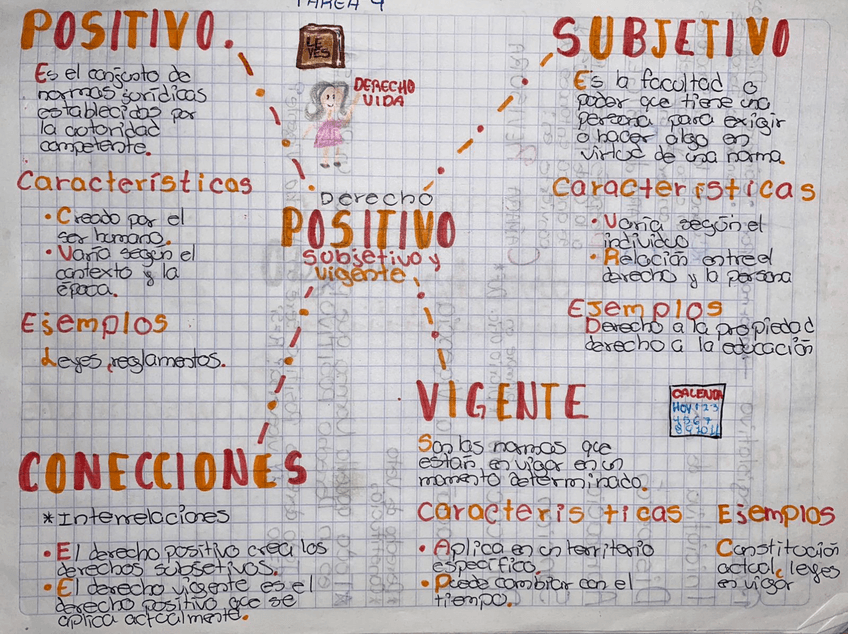 TAREA 4
POSITIVO.
Es el conjunto de
normas jurídicas
establecidas por
la autoridad
competente.
Características
• Creado por el
ser humano.
• Varia según el
contexto y la
época.
Ejemplos
Leyes, reglamentos.
LE
YES
DERECHO
VIDA
Derecho
POSITIVO
subjetivo y
vigente
SUBJETIVO
Es la facultad o
poder que tiene una
persona para exigir
o hacer algo en
virtud de una norma.
Características
• Varía según el
individuo
• Relación entre el
derecho y la persona
Ejemplos
Derecho a la propiedad
derecho a la educación
VIGENTE
Son las normas que
están en vigor en un
momento determinado.
Características
• Aplica en un territorio
específico.
• Puede cambiar con el
tiempo.
Ejemplos
Constitución
actual, leyes
en vigor
CONECCIONES
*Interrelaciones
• El derecho positivo crea los
derechos subjetivos.
• El derecho vigente es el
derecho positivo que se
aplica actualmente.